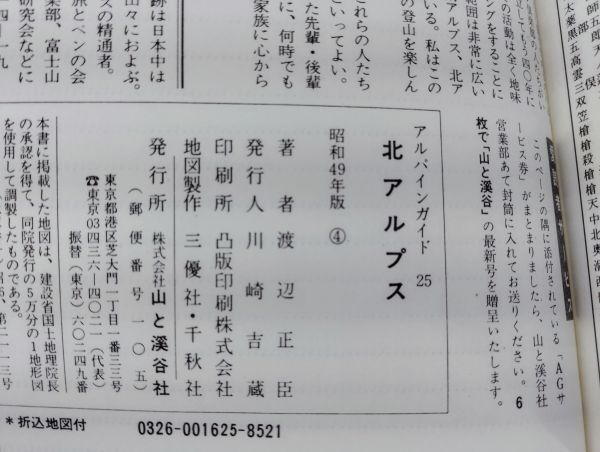 師部
このページの隅に添付されている「AGサ
ービス券」がまとまりましたら、山と溪谷社
営業部あて封筒に入れてお送りください。6
枚で「山と溪谷」の最新号を贈呈いたします。
の活動は全く地味
範囲は非常に広い
ングをすることに
アルプス、北ア
いる。私はこの
の登山を楽しん
これらの人たち
いってよい。
た先輩・後輩
に、何時でも
家族に心から
跡は日本中は
山々におよぶ。
スの精通者。
旅とペンの会
業部、富士山
研究会などに
アルパインガイド 25
北アルプス
昭和49年版 ④
著者 渡辺正臣
発行人 川崎吉蔵
印刷所 凸版印刷株式会社
地図製作 三優社・千秋社
発行所 株式会社 山と溪谷社
(郵便番号一〇五)
東京都港区芝大門一丁目一番三三号
☎東京03四三六―四〇二一(代表)
振替(東京)六〇二四九番
本書に掲載した地図は、建設省国土地理院長
の承認を得て、同院発行の5万分の1地形図
を使用して調製したものである。
*折込地図付
0326-001625-8521